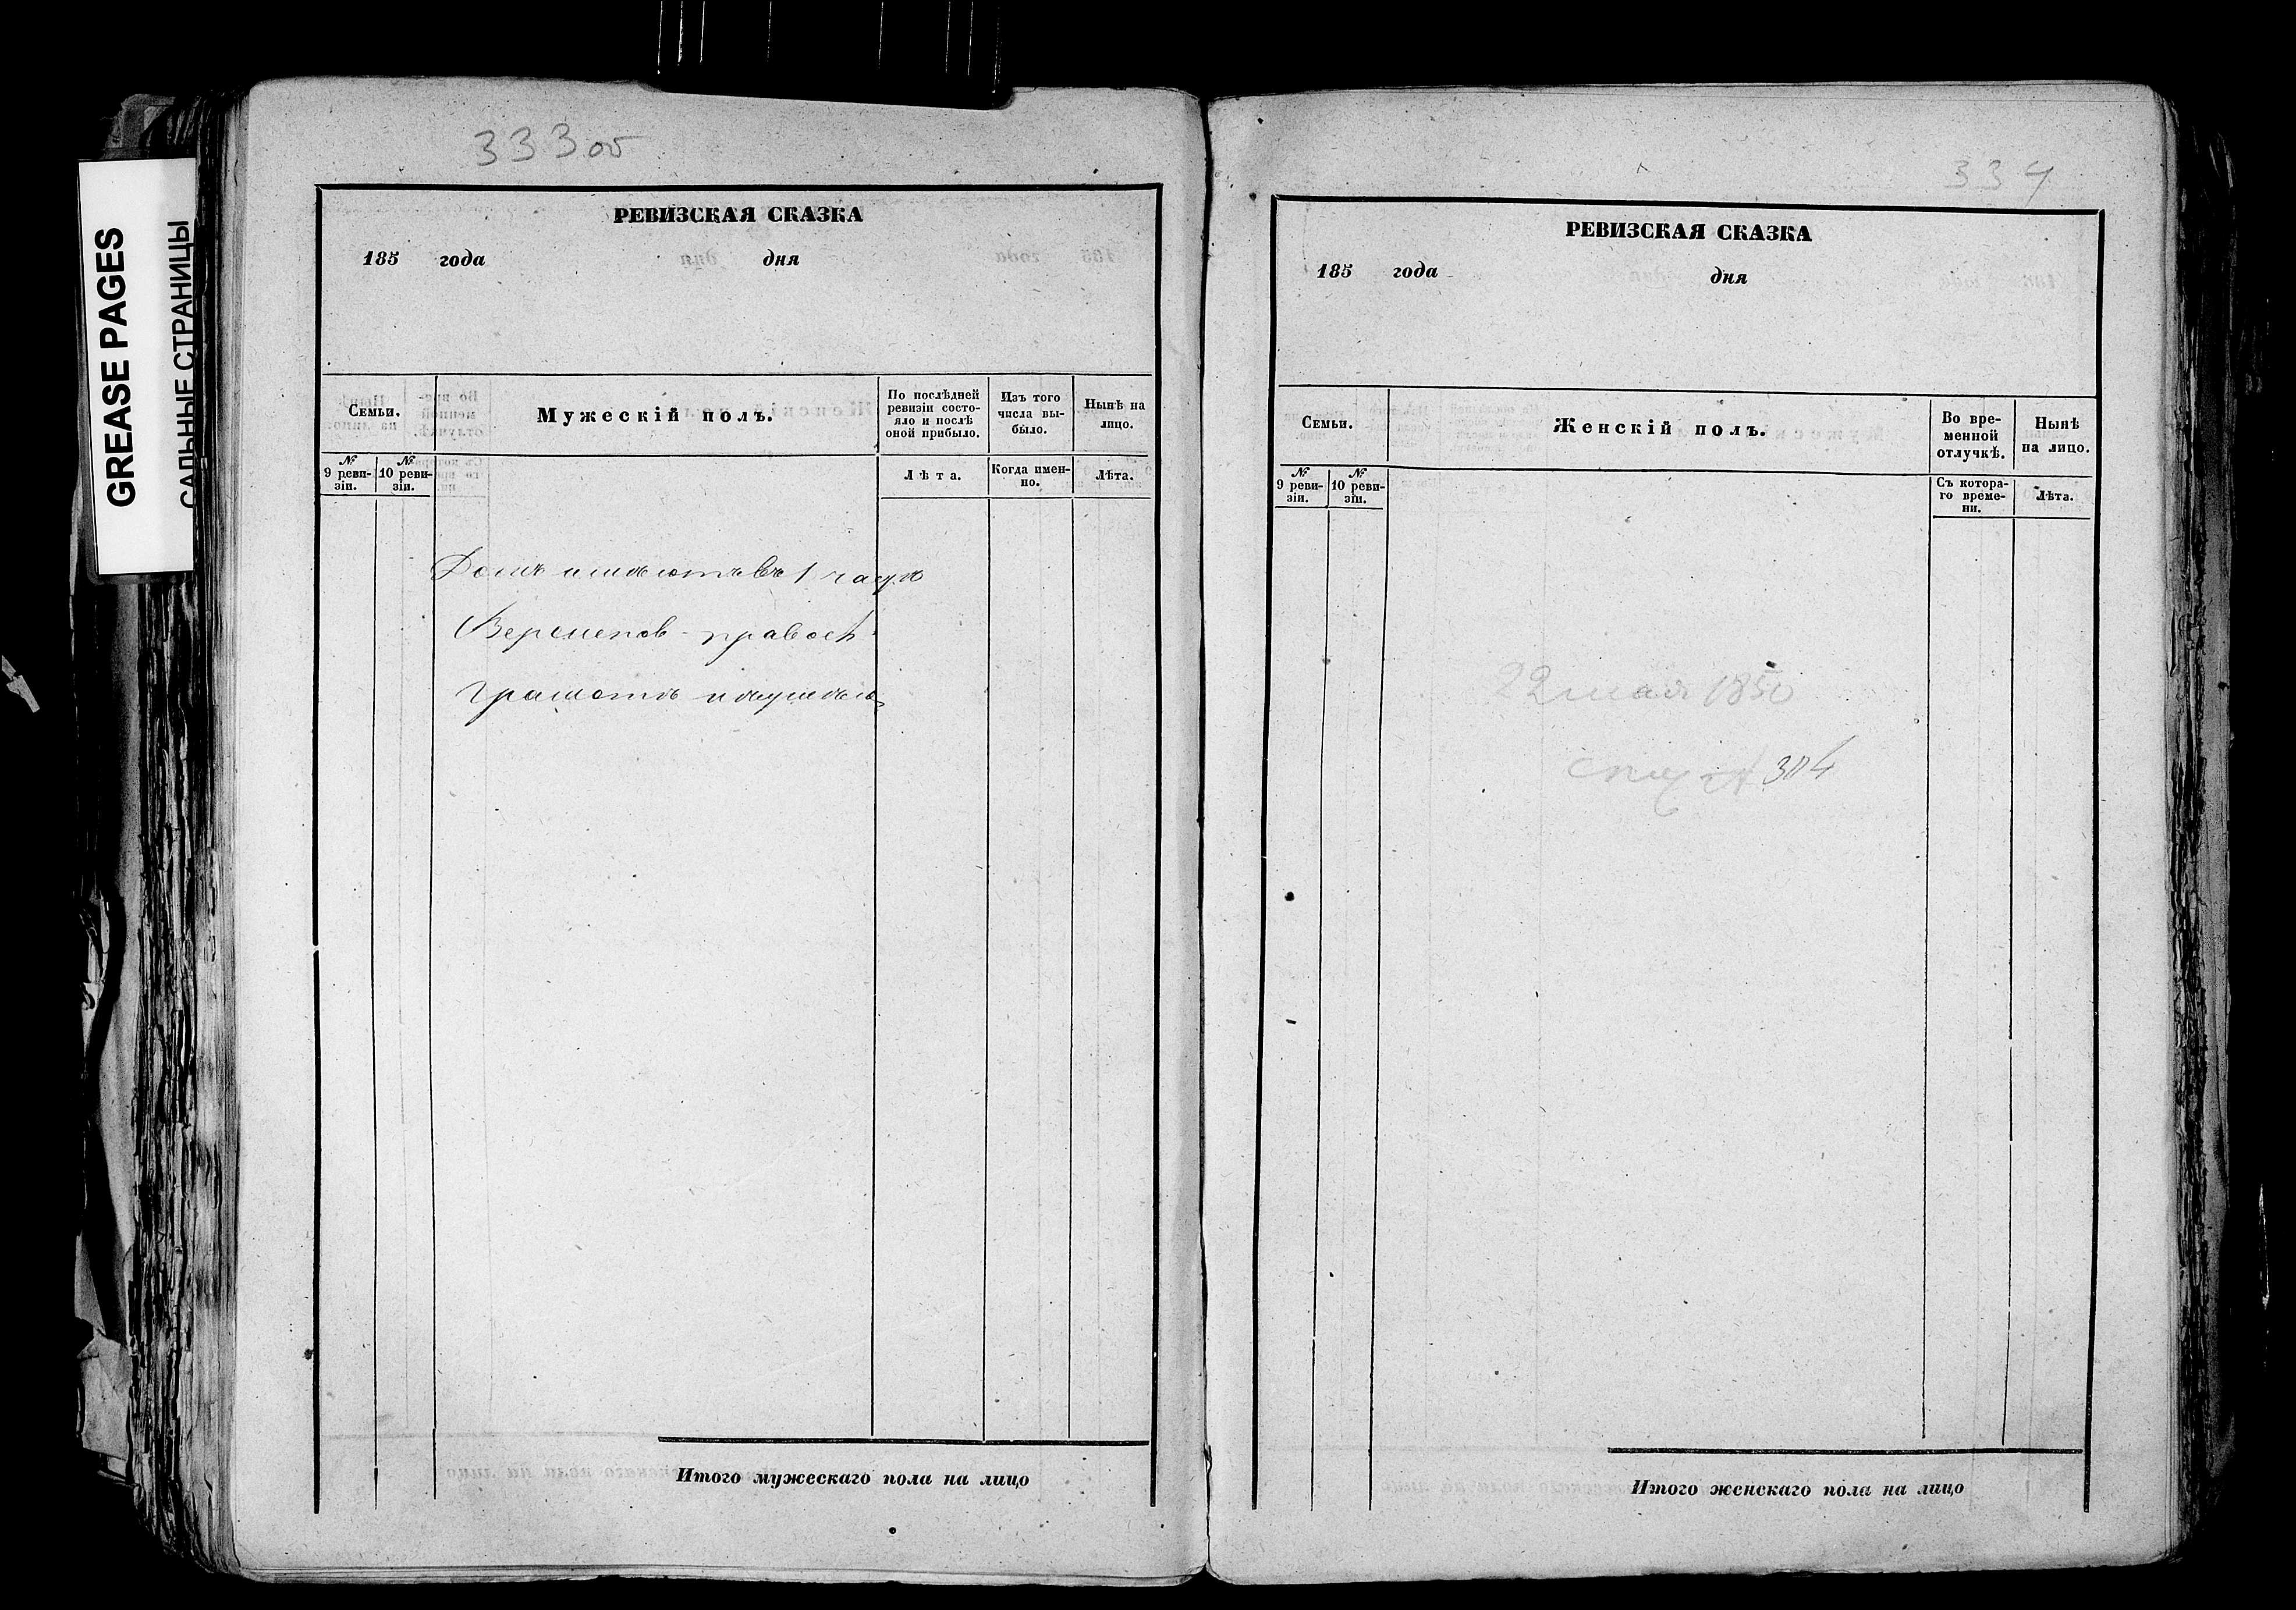 GREASE PAGES
САЛЬНЫЕ СТРАНИЦЫ
333 об
РЕВИЗСКАЯ СКАЗКА
185 года дня
Семьи.
Мужескій полъ.
По послѣдней ревизіи состояло и послѣ оной прибыло.
Изъ того числа выбыло.
Нынѣ на лицо.
№ 9 ревизіи.
№ 10 ревизіи.
Лѣта.
Когда именно.
Лѣта.
Домъ имѣютъ въ 1 части
грамотѣ
Итого мужескаго пола на лицо
334
РЕВИЗСКАЯ СКАЗКА
185 года дня
Семьи.
Женскій полъ.
Во временной отлучкѣ.
Нынѣ на лицо.
№ 9 ревизіи.
№ 10 ревизіи.
Съ котораго времени.
Лѣта.
22 мая 1850
304
Итого женскаго пола на лицо